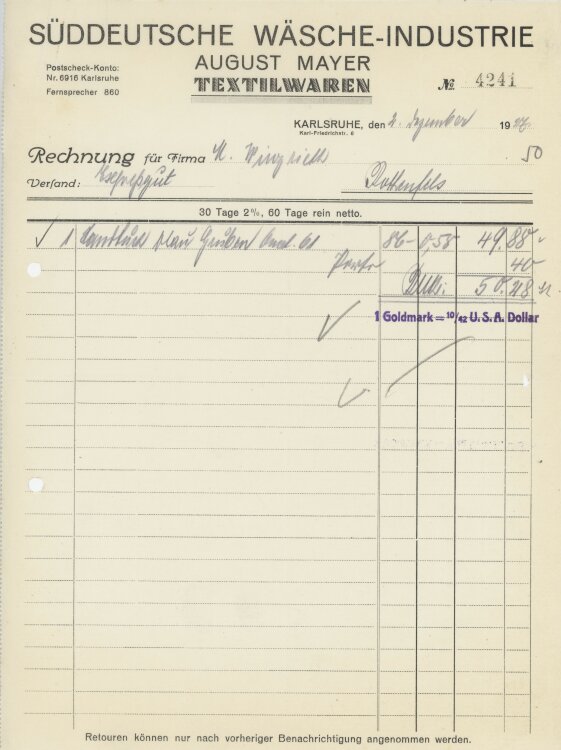 SÜDDEUTSCHE WÄSCHE-INDUSTRIE
AUGUST MAYER
TEXTILWAREN
Postscheck-Konto:
Nr. 6916 Karlsruhe
Fernsprecher 860
№ 4241
KARLSRUHE, den 2. Dezember 19
Karl-Friedrichstr. 6
50
Rechnung für Firma
Versand: Expreßgut
Rottenfels
30 Tage 2%, 60 Tage rein netto.
1 blau 86 - 0,58 49.88
Porto 40
50.28
1 Goldmark = 10/42 U.S.A. Dollar
Retouren können nur nach vorheriger Benachrichtigung angenommen werden.